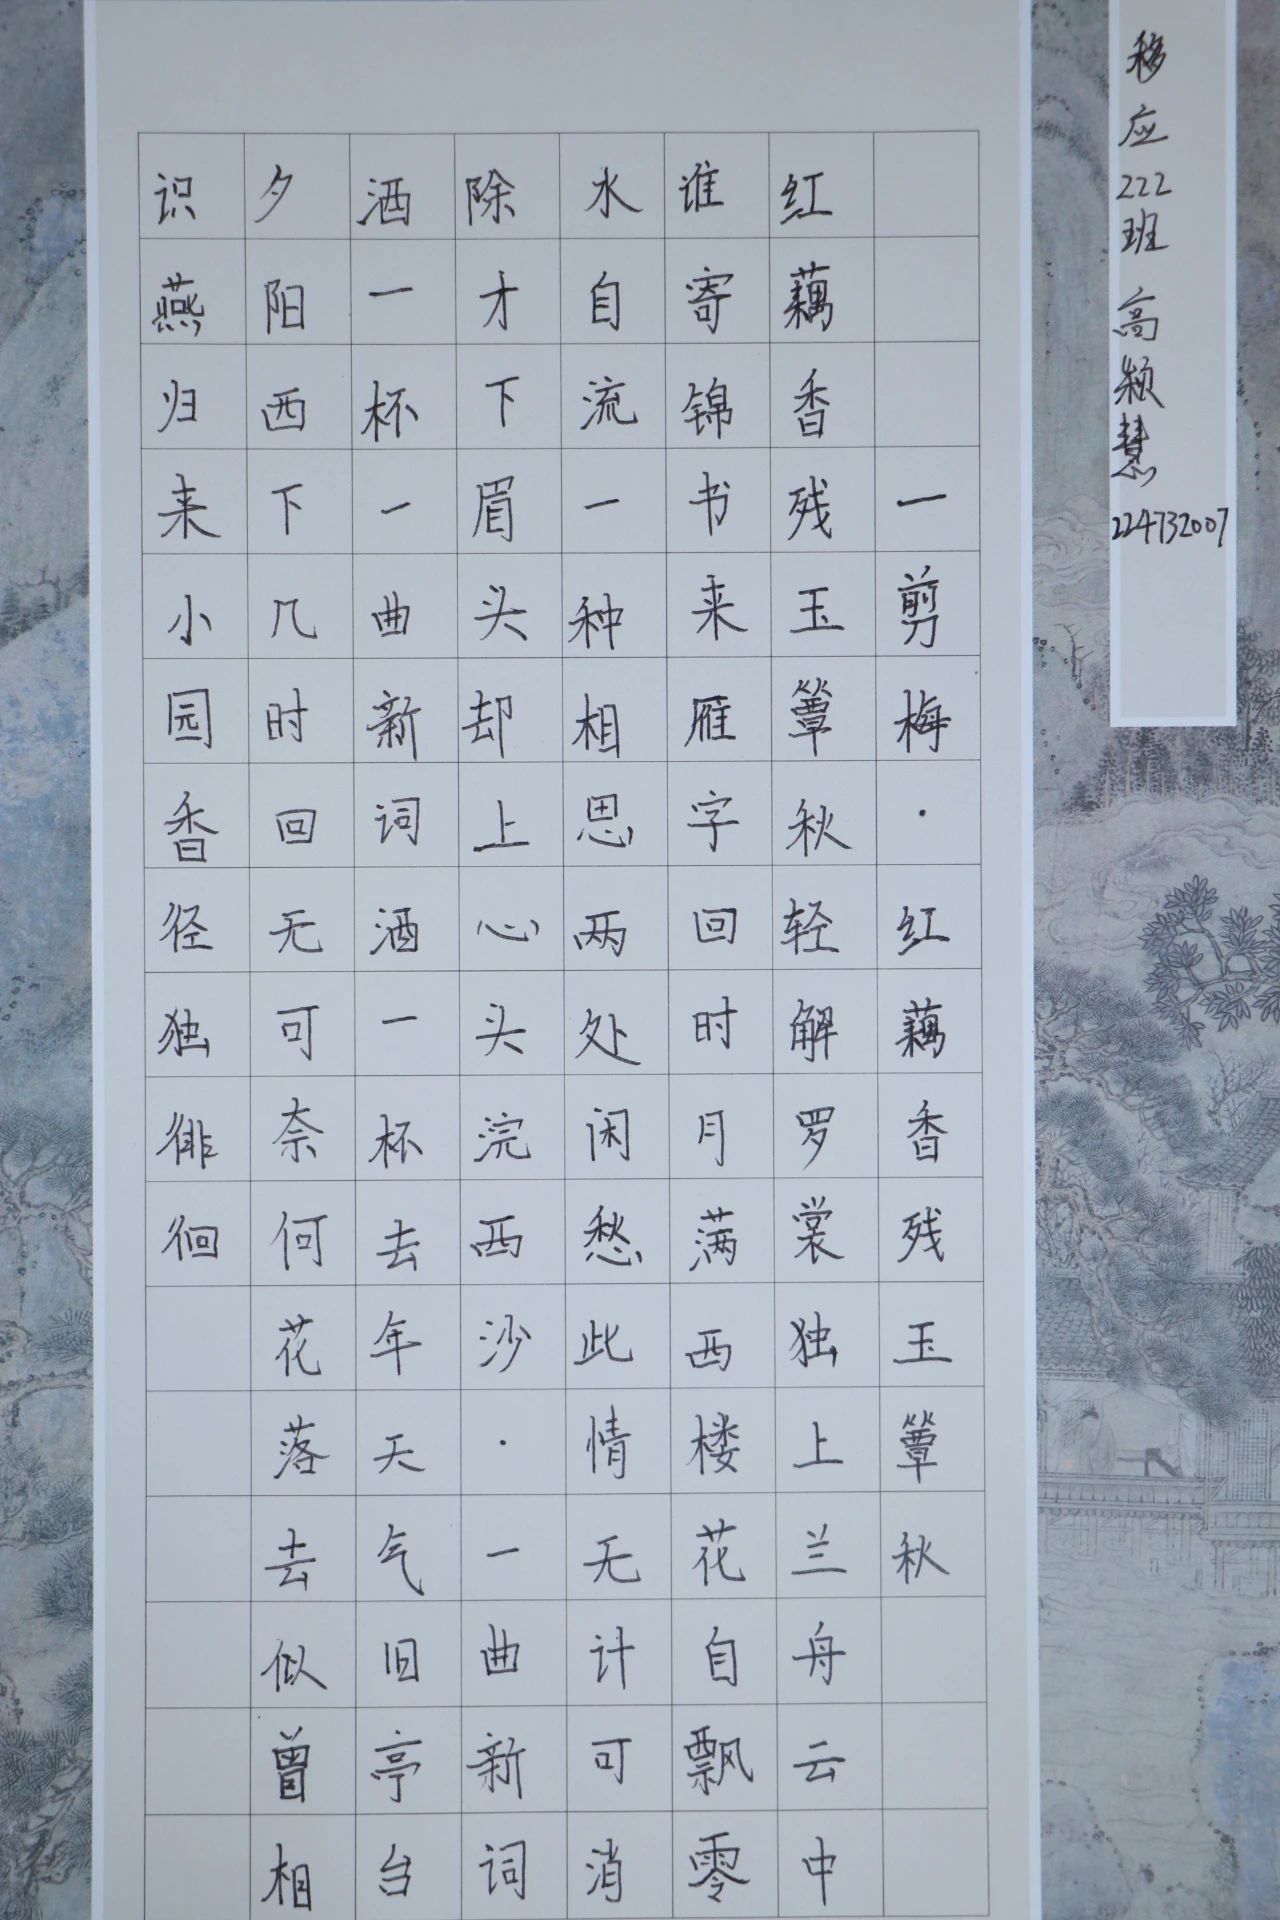 移应222班 高颖慧 224732007
一剪梅·红藕香残玉簟秋
红藕香残玉簟秋轻解罗裳独上兰舟云中
谁寄锦书来雁字回时月满西楼花自飘零
水自流一种相思两处闲愁此情无计可消
除才下眉头却上心头浣西沙·一曲新词
酒一杯一曲新词酒一杯去年天气旧亭台
夕阳西下几时回无可奈何花落去似曾相
识燕归来小园香径独徘徊